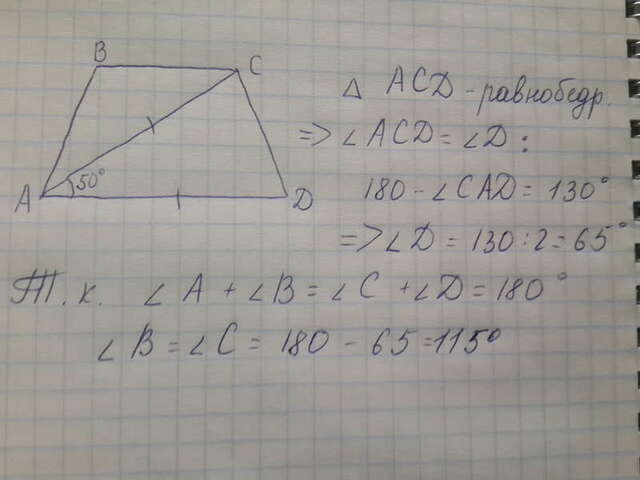 B
C
A
50°
D
△ ACD - равнобедр.
=> ∠ACD = ∠D :
180 - ∠CAD = 130°
=> ∠D = 130 : 2 = 65°
Т. к. ∠A + ∠B = ∠C + ∠D = 180°
∠B = ∠C = 180 - 65 = 115°